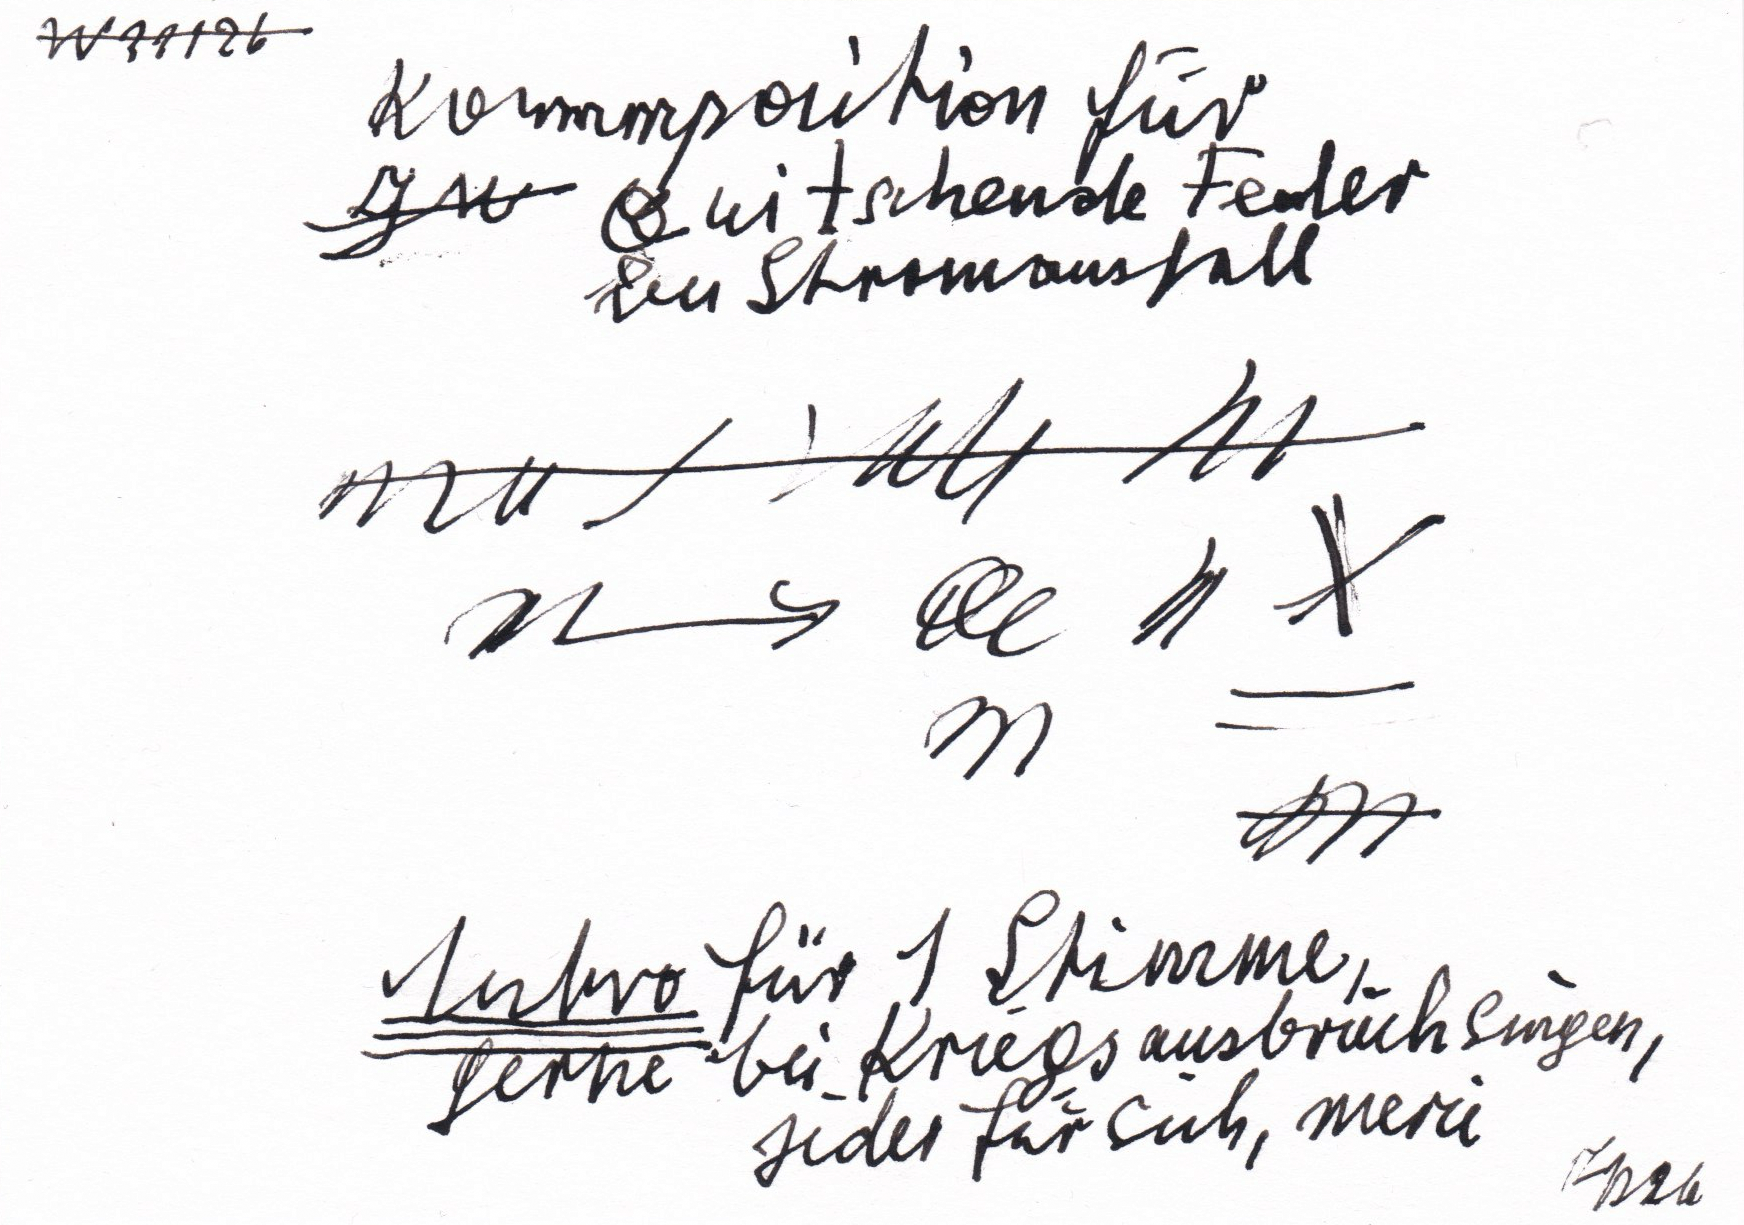 W 11126
Kommposition für
Quitschende Feder
bei Stromausfall
Intro für 1 Stimme,
gerne bei Kriegsausbrüch singen,
jeder für sich, merci